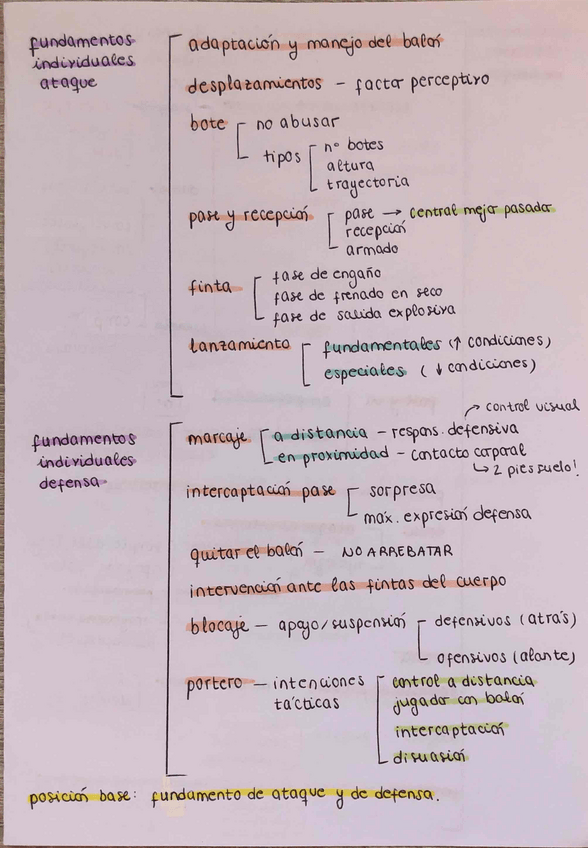 fundamentos
individuales
ataque
adaptación y manejo del balón
desplazamientos - factor perceptivo
bote
no abusar
tipos
nº botes
altura
trayectoria
pase y recepción
pase → central mejor pasador
recepción
armado
finta
fase de engaño
fase de frenado en seco
fase de salida explosiva
lanzamiento
fundamentales (↑ condiciones)
especiales (↓ condiciones)
fundamentos
individuales
defensa
control visual
marcaje
a distancia - respons. defensiva
en proximidad - contacto corporal
↳ 2 pies suelo!
interceptación pase
sorpresa
máx. expresión defensa
quitar el balón - NO ARREBATAR
intervención ante las fintas del cuerpo
blocaje - apoyo/suspensión
defensivos (atrás)
ofensivos (alante)
portero - intenciones
tácticas
control a distancia
jugador con balón
interceptación
disuasión
posición base: fundamento de ataque y de defensa.